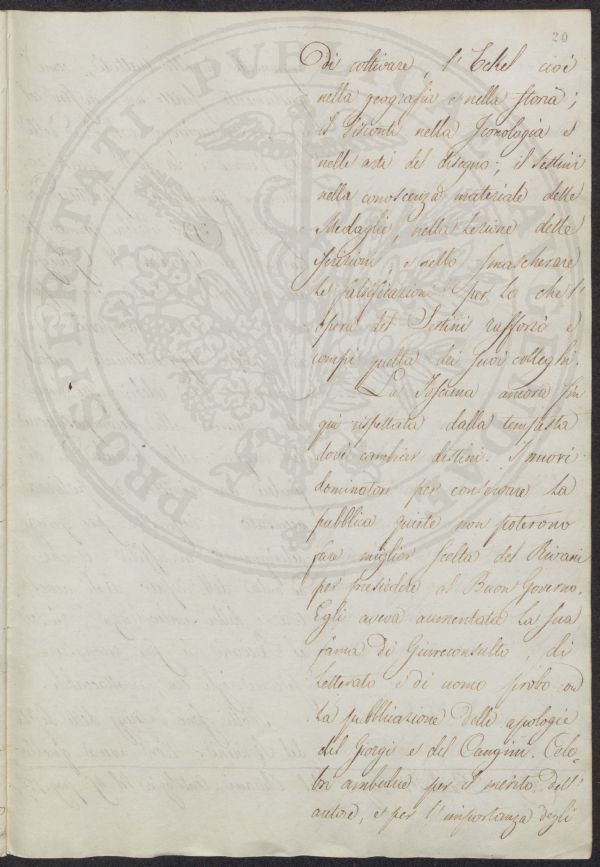 20
Di coltivare, l'Eckel cioè
nella geografia e nella storia;
il Visconti nella Iconologia e
nelle arti del disegno; il Sestini
nella conoscenza materiale delle
Medaglie, nella lezione delle
Iscrizioni, e nello smascherare
le falsificazioni per lo che l'
opera del Sestini rafforzò e
compì quella dei suoi colleghi.
La Toscana ancora fin
qui rispettata dalla tempesta
dové cambiar destini. I nuovi
dominatori per conservare la
pubblica quiete non poterono
fare miglior scelta del Rivani
per presiedere al Buon Governo.
Egli aveva aumentata la sua
fama di Giureconsulto, di
Letterato e di uomo probo con
la pubblicazione delle apologie
del Giorgi e del Cangini. Cele=
bri ambedue per il merito dell'
autore, e per l'importanza degli
PROSPERITATI PVBLICAE